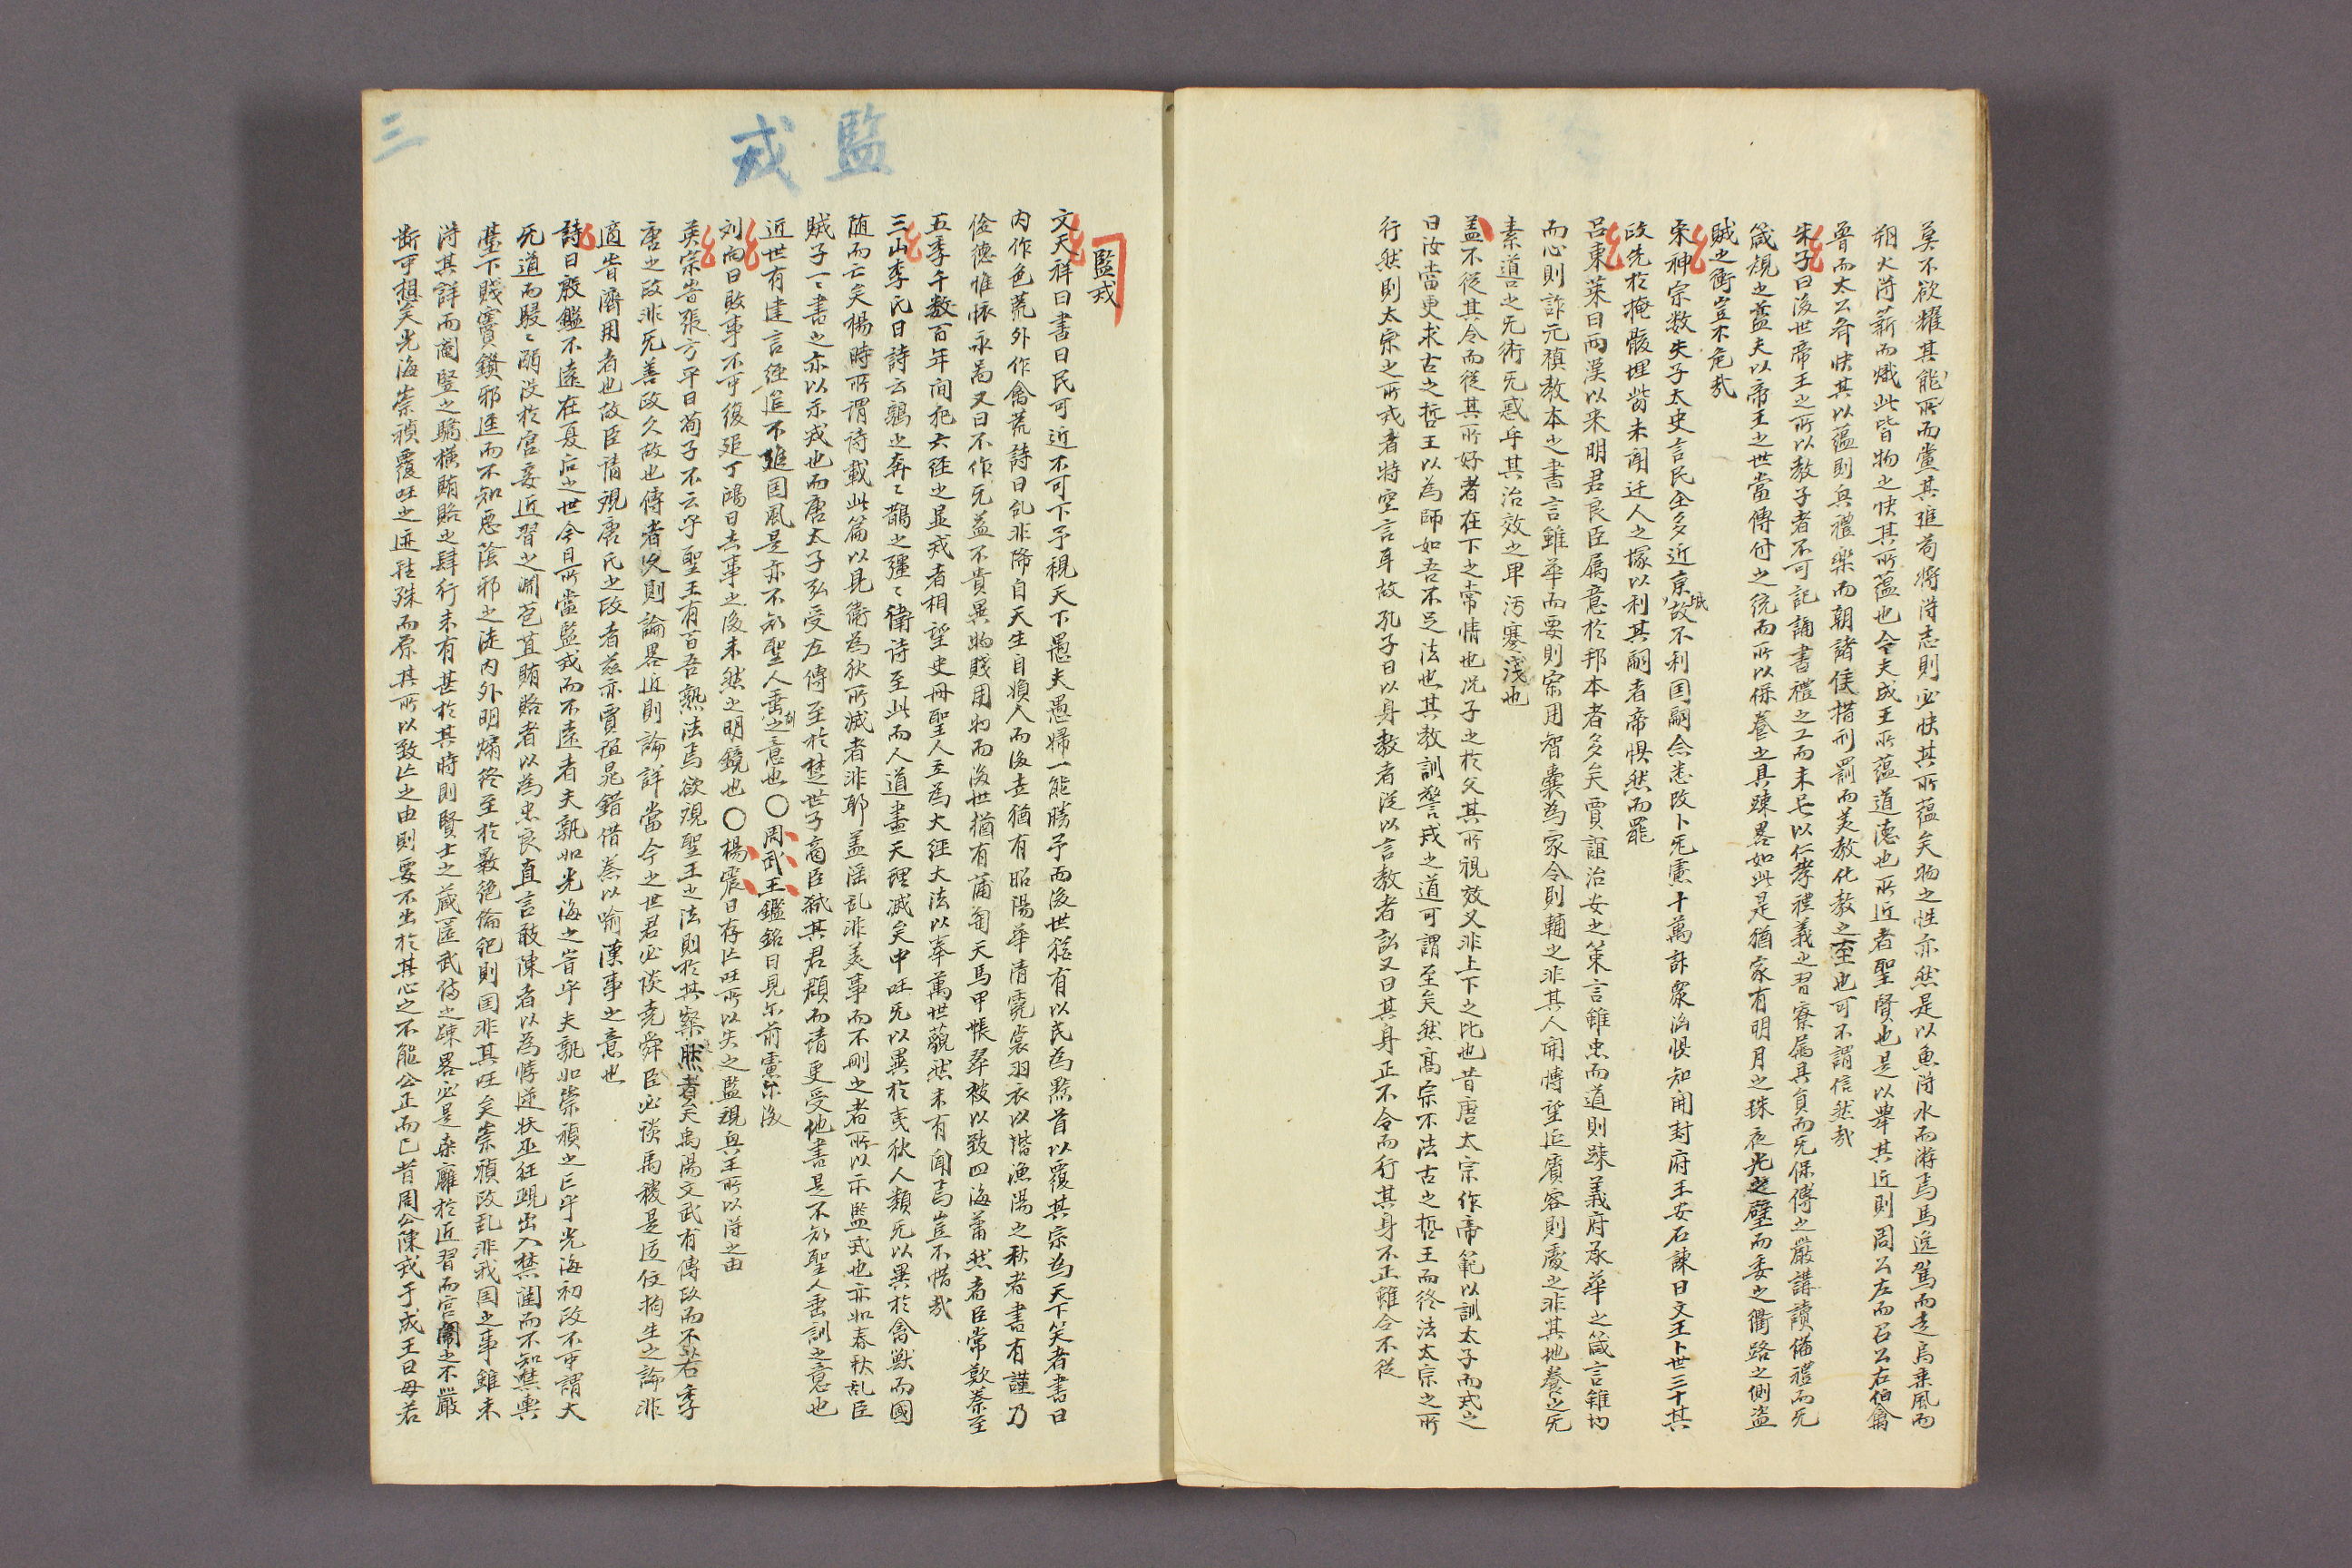 莫不欲耀其能所而黨其進苟將淂志則必快其所蘊矣物之性亦然是以魚淂水而游焉馬逸駕而走鳥乘風而
翔火淂薪而熾此皆物之快其所蘊也今夫成王所蘊道德也所近者聖賢也是以擧其近則周公左而召公右伯禽
魯而太公齊快其以蘊則與禮樂而朝諸侯措刑罰而美敎化敎之至也可不謂信然㢤
朱子曰後世帝王之所以敎子者不可記誦書禮之工而未㫒以仁孝禮義之習寮属具負而旡保傅之嚴講讀俻禮而旡
箴規之益夫以帝王之世當傳付之統而所以保養之具踈畧如此是猶家有明月之珠夜光之璧而委之衢路之側盜
賊之衝豈不危㢤
宋神宗数失子太史言民圶多近京城故不利囯嗣㑹悉改卜旡慮十萬計衆洶惧知開封府王安石諫曰文王卜世三十其
政先於掩骸埋胔未聞迁人之塚以利其嗣者帝惧然而罷
呂東萊曰両漢以来明君良臣属意於邦本者多矣賈誼治安之策言雖忠而道則踈義府承華之箴言雖切
而心則詐元稹敎本之書言雖華而要則宗用智囊為家令則輔之非其人開愽望延賓容則處之非其地養之旡
素導之旡術旡惑乎其治效之卑汚蹇淺也
盖不從其令而從其所好者在下之常情也况子之於父其所視效又非上下之比也昔唐太宗作帝範以訓太子而戒之
曰汝當更求古之哲王以為師如吾不足法也其敎訓警戒之道可謂至矣然髙宗不法古之哲王而終法太宗之所
行然則太宗之所戒者特空言耳故孔子曰以身敎者従以言敎者訟又曰其身正不令而行其身不正雖令不從
監戎
三
監戎
文天祥曰書曰民可近不可下予視天下愚夫愚婦一能勝予而後世猶有以民為黔首以覆其宗為天下笑者書曰
内作色荒外作禽荒詩曰乱非降自天生自婦人而後世猶有昭陽華清霓裳羽衣以階漁陽之秋者書有謹乃
儉德惟懷永圖又曰不作旡益不貴異物賤用物而後世猶有蒲萄天馬甲帳翠被以致四海蕭然者臣常歎秦至
五季千数百年间犯六経之显戎者相望史冊聖人立為大経大法以奉萬世藐然未有聞焉豈不惜㢤
三山李氏曰詩云鶉之奔〻鵲之彊〻衛诗至此而人道盡天理滅矣中囯旡以異於夷狄人類旡以異於禽獸而國
随而亡矣楊時所謂诗載此篇以見衛為狄所滅者非耶盖淫乱非美事而不刪之者所以示監戎也亦如春秋乱臣
賊子一〻書之亦以示戎也而唐太子弘受左傳至於楚世子商臣弑其君頵而请更受他書是不知聖人垂訓之意也
近世有建言経筵不進国風是亦不知聖人垂训之意也〇周武王鑑銘曰見尔前慮尔後
刘向曰敗事不可復追丁鴻曰去事之後未然之明鏡也〇楊震曰存亡所以失之監視與王所以淂之由
英宗旹張方平曰荀子不云乎聖王有百吾熟法焉欲視聖王之法則於其粲然者矣禹湯文武有傳政而不若季
唐之政非旡善政久故也傳者久則論畧近則論詳當今之世君必谈堯舜臣必谈禹稷是迂佞拘生之論非
適旹濟用者也故臣请視唐氏之政者兹亦賈誼晁錯借秦以喻漢事之意也
詩曰殷鑑不遠在夏后之世今日所當監戎而不遠者夫孰如光海之旹乎夫孰如崇禎之亡乎光海初政不可謂大
旡道而駸〻溺没於宮妾近習之淵苞苴賄賂者以為忠良直言敢陳者以為悖逆妖巫狂覡出入禁闥而不知禁輿
臺下賎賓鑽邪逕而不知惡陰邪之徒内外明煽終至於斁絶倫紀則囯非其囯矣崇禎政乱非我囯之事雖未
淂其詳而閹竪之驕橫賄賂之肆行未有甚於其時則賢士之蔵匿武俻之踈畧必是桒廱於近習而宮闈之不嚴
断可想矣光海崇禎覆囯之迹雖殊而原其所以致亡之由則要不出於其心之不能公正而已昔周公陳戎于成王曰毋若